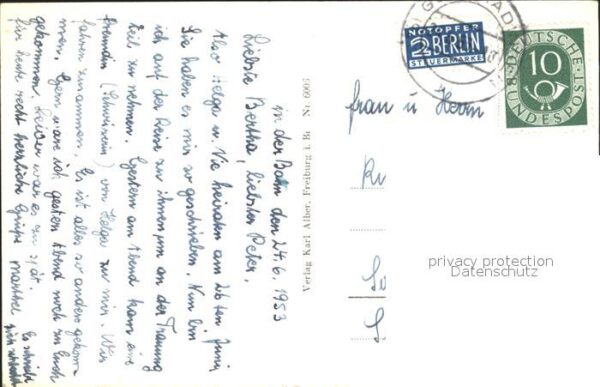 in der Bahn den 24.6.1953
Liebste Bertha, liebster Peter,
Also Helga u Vic heiraten am 26ten Juni
Sie haben es mir so geschrieben. Nun bin
ich auf der Reise zu ihnen um an der Trauung
teil zu nehmen. Gestern am Abend kam eine
Freundin (Schweizerin) von Helga zu mir. Wir
fahren zusammen. Es ist alles so anders gekom
men. Gern wäre ich gestern Abend noch zu Euch
gekommen, leider war es zu spät.
für heute recht herzliche Grüße
Es schreibt
sich schlecht
Verlag Karl Alber, Freiburg i. Br. Nr. 6006
NOTOPFER
2 BERLIN
STEUERMARKE
10
DEUTSCHE
BUNDESPOST
Frau u Herrn
privacy protection
Datenschutz